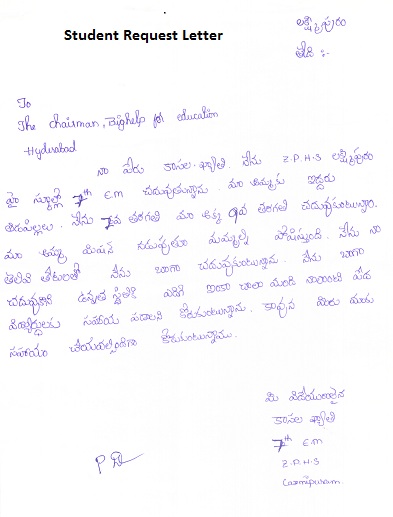 లక్ష్మీపురం
తేది :-
Student Request Letter
To
The chairman, Bighelp for education
Hyderabad
నా పేరు కాసల. ఖ్యాతి. నేను Z.P.H.S లక్ష్మీపురం
హై స్కూల్లో 7th E.M చదువుతున్నాను. మా అమ్మకు ఇద్దరు
ఆడపిల్లలు. నేను 7వ తరగతి మా అక్క 9వ తరగతి చదువుకుంటున్నాం.
మా అమ్మ మిషన్ నడుపుతూ మమ్మల్ని పోషిస్తుంది. నేను నా
తెలివి తేటలతో నేను బాగా చదువుకుంటున్నాను. నేను బాగా
చదువుకొని ఉన్నత స్థితికి ఎదిగి ఇంకా చాలా మంది నాలాంటి పేద
విద్యార్థులకు సహాయ పడాలని కోరుకుంటున్నాను. కావున మీరు మాకు
సహాయం చేయవలసిందిగా కోరుకుంటున్నాము.
మీ విధేయురాలైన
కాసల ఖ్యాతి
7th E.M
Z.P.H.S
Laxmipuram.